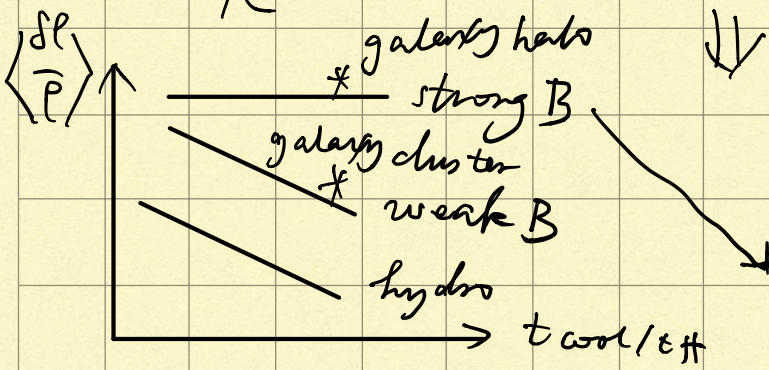 ⟨δρ/ρ⟩
galaxy halo
* strong B
galaxy cluster
* weak B
hydro
t cool / t ff